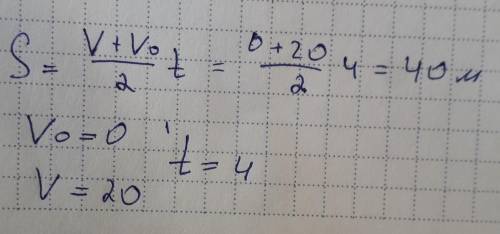 S = (V + V₀)/2 t = (0 + 20)/2 4 = 40 м
V₀ = 0 ' t = 4
V = 20